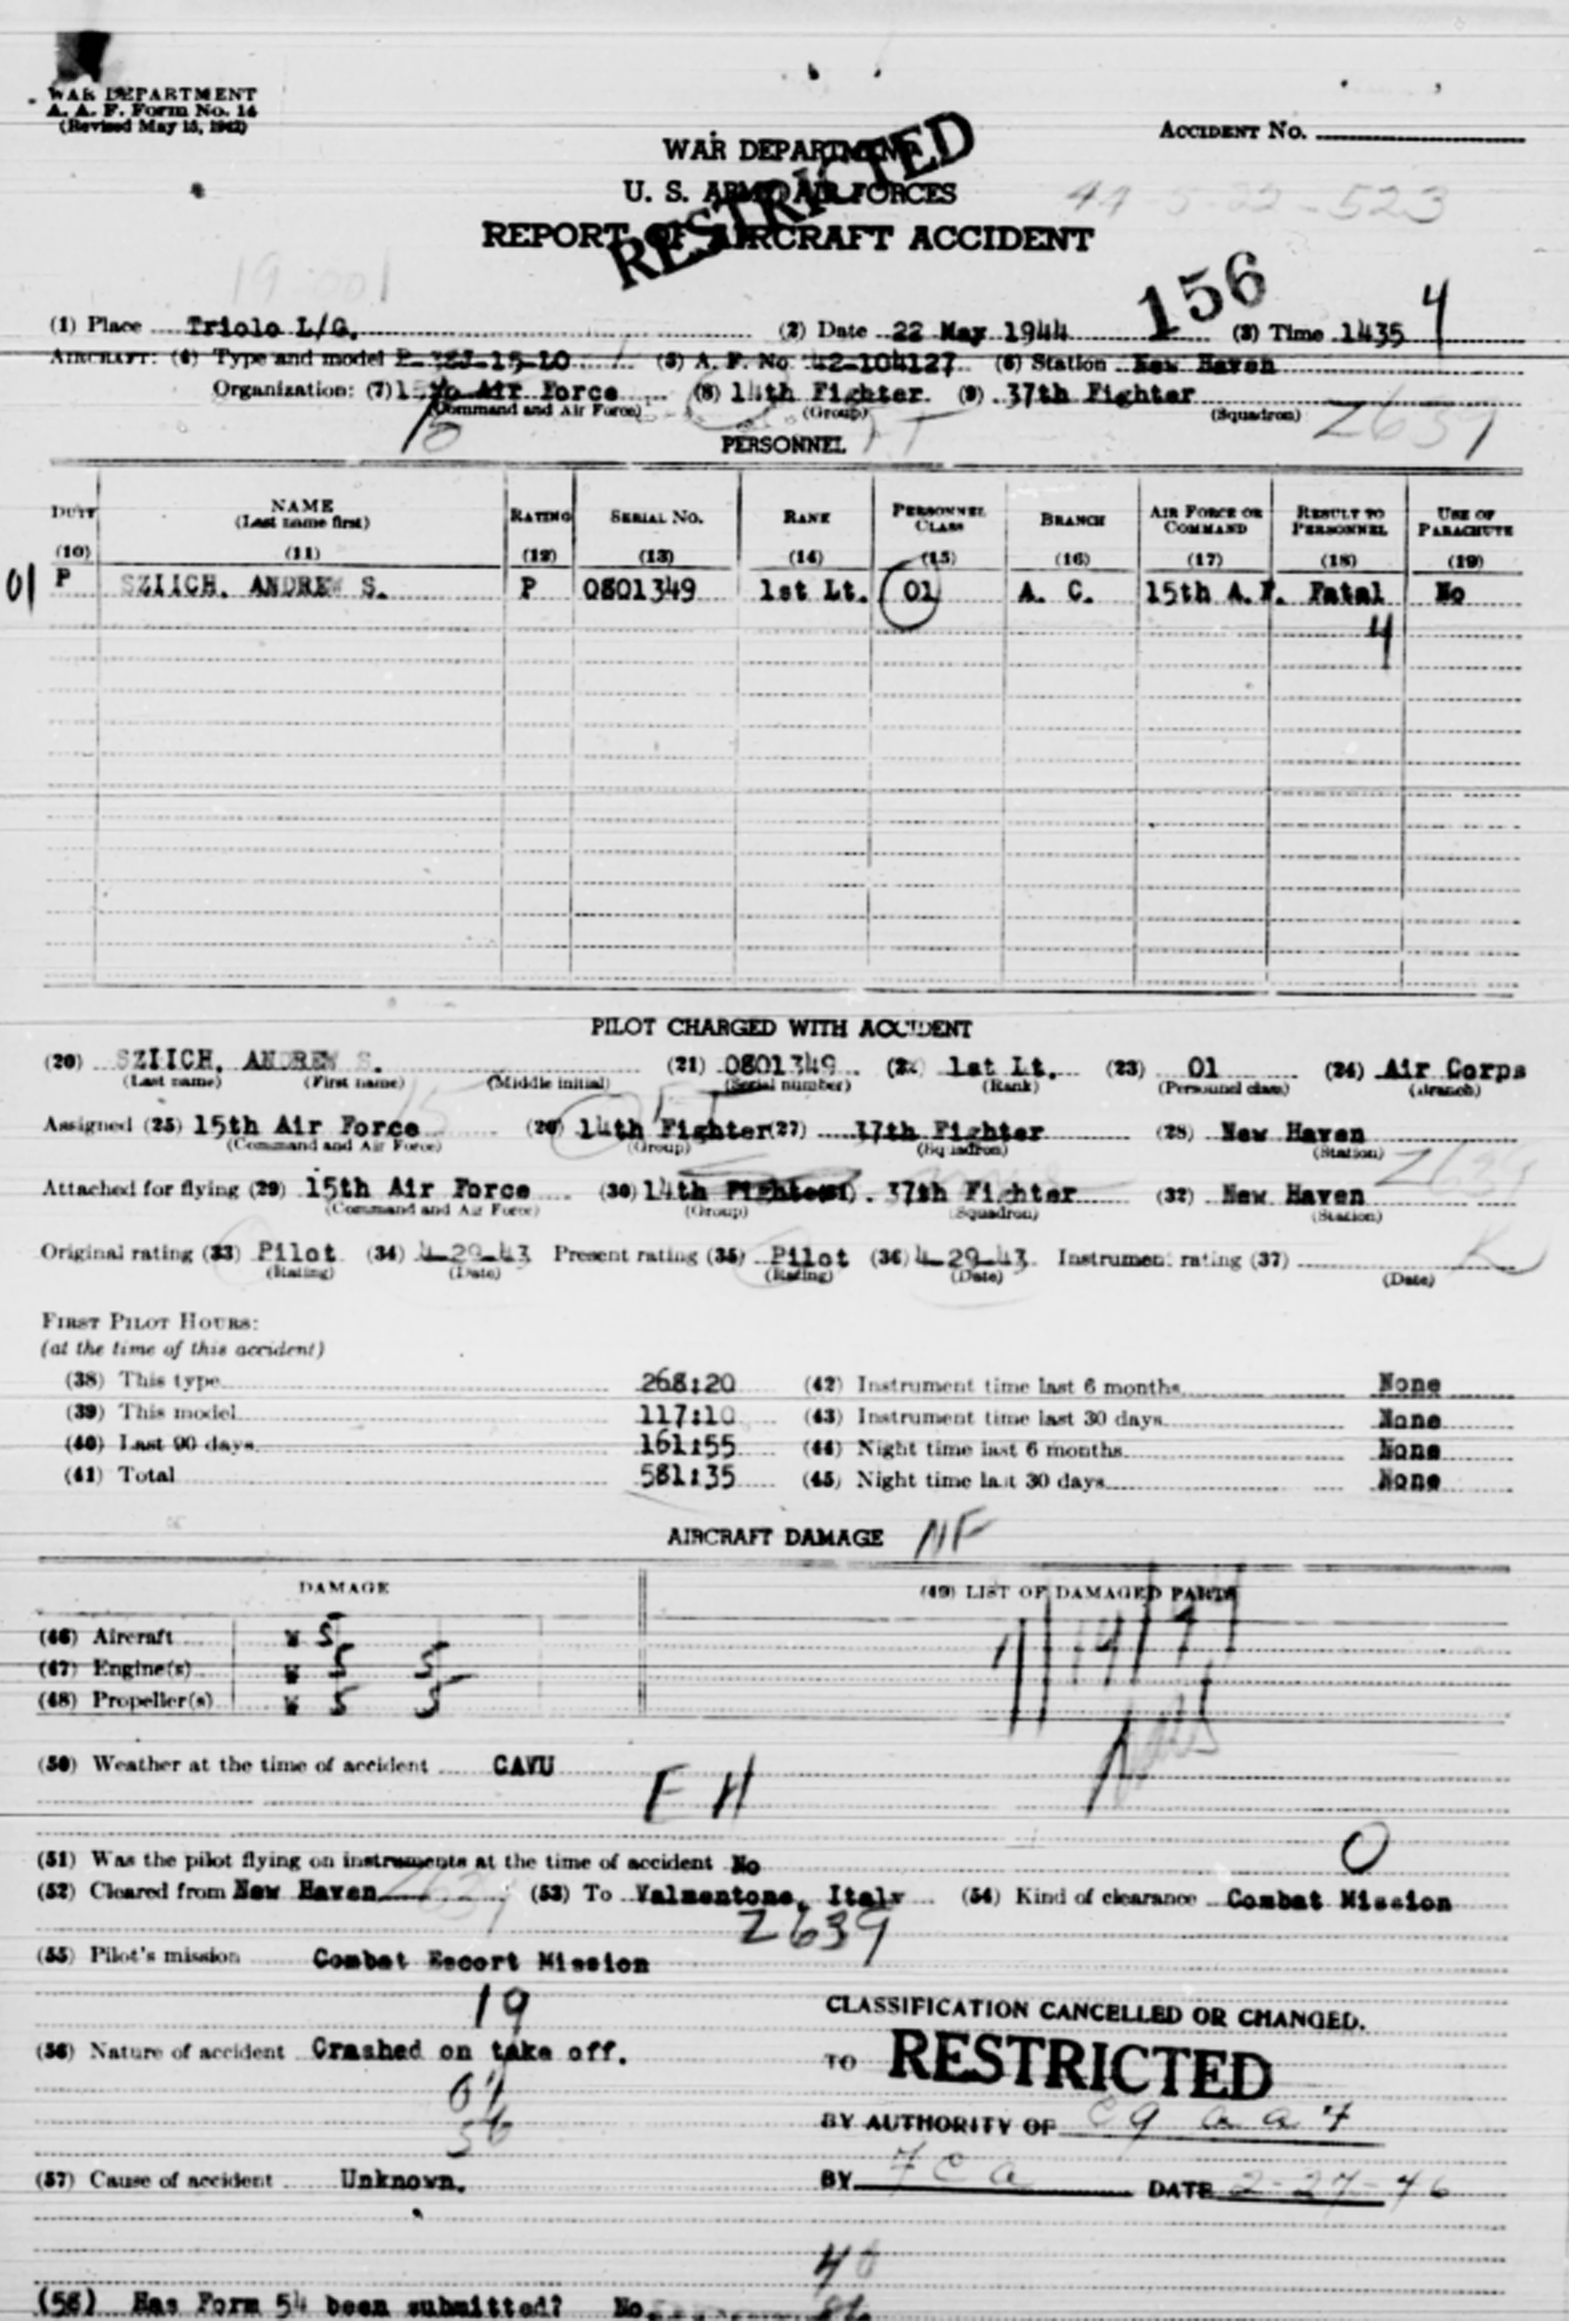 WAR DEPARTMENT
A. A. F. Form No. 14
(Revised May 15, 1942)
ACCIDENT No.
WAR DEPARTMENT
U. S. ARMY AIR FORCES
RESTRICTED
44-5-22-523
REPORT OF AIRCRAFT ACCIDENT
19.001
156
4
(1) Place Triolo L/G. (2) Date 22 May 1944 (3) Time 1435
AIRCRAFT: (4) Type and model P-38J-15-LO (5) A. F. No. 42-104127 (6) Station New Haven
Organization: (7) Air Force (8) 14th Fighter (9) 37th Fighter
(Command and Air Force) (Group) (Squadron) 2639
15
PERSONNEL
DUTY NAME (Last name first) RATING SERIAL No. RANK PERSONNEL CLASS BRANCH AIR FORCE OR COMMAND RESULT TO PERSONNEL USE OF PARACHUTE
(10) (11) (12) (13) (14) (15) (16) (17) (18) (19)
01 P SZIICH, ANDREW S. P 0801349 1st Lt. 01 A. C. 15th A.F. Fatal No
4
PILOT CHARGED WITH ACCIDENT
(20) SZIICH, ANDREW S. (21) 0801349 (22) 1st Lt. (23) 01 (24) Air Corps
(Last name) (First name) (Middle initial) (Serial number) (Rank) (Personnel class) (Branch)
Assigned (25) 15th Air Force (26) 14th Fighter (27) 37th Fighter (28) New Haven
(Command and Air Force) (Group) (Squadron) (Station)
2639
Attached for flying (29) 15th Air Force (30) 14th Fighter (31) 37th Fighter (32) New Haven
(Command and Air Force) (Group) (Squadron) (Station)
Original rating (33) Pilot (34) 4-29-43 Present rating (35) Pilot (36) 4-29-43 Instrument rating (37)
(Rating) (Date) (Rating) (Date) (Date)
FIRST PILOT HOURS:
(at the time of this accident)
(38) This type 268:20 (42) Instrument time last 6 months None
(39) This model 117:10 (43) Instrument time last 30 days None
(40) Last 90 days 161:55 (44) Night time last 6 months None
(41) Total 581:35 (45) Night time last 30 days None
AIRCRAFT DAMAGE NF
DAMAGE (49) LIST OF DAMAGED PARTS
(46) Aircraft W 5
(47) Engine(s) W 5 5
(48) Propeller(s) W 5 5
(50) Weather at the time of accident CAVU
E H
0
(51) Was the pilot flying on instruments at the time of accident No
(52) Cleared from New Haven (53) To Valmentone, Italy (54) Kind of clearance Combat Mission
2639
(55) Pilot's mission Combat Escort Mission
19
CLASSIFICATION CANCELLED OR CHANGED.
(56) Nature of accident Crashed on take off.
TO RESTRICTED
BY AUTHORITY OF C g a a f
(57) Cause of accident Unknown.
BY 7 C a DATE 2-27-46
(58) Has Form 54 been submitted? No